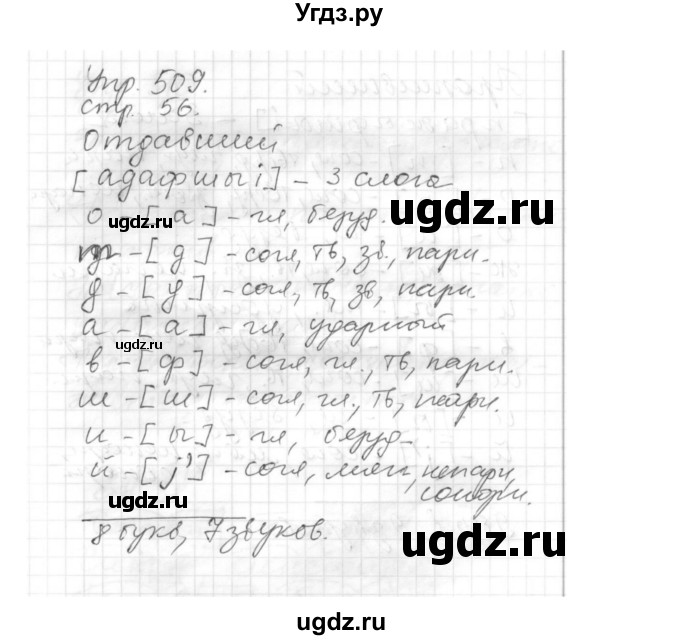 Угдз.ру
Упр. 509.
стр. 56.
Отдавший
[адафшыi] – 3 слога
о – [а] – гл, безуд.
т – [д] – согл, тв, зв., парн.
д – [д] – согл, тв, зв, парн.
а – [а] – гл, ударный
в – [ф] – согл, гл., тв, парн.
ш – [ш] – согл, гл., тв, парн.
и – [ы] – гл, безуд.
й – [j'] – согл, мягк, непарн,
сонорн.
8 букв, 7 звуков.
ugdz.ru
ugdz.ru
ugdz.ru
ugdz.ru
ugdz.ru
ugdz.ru